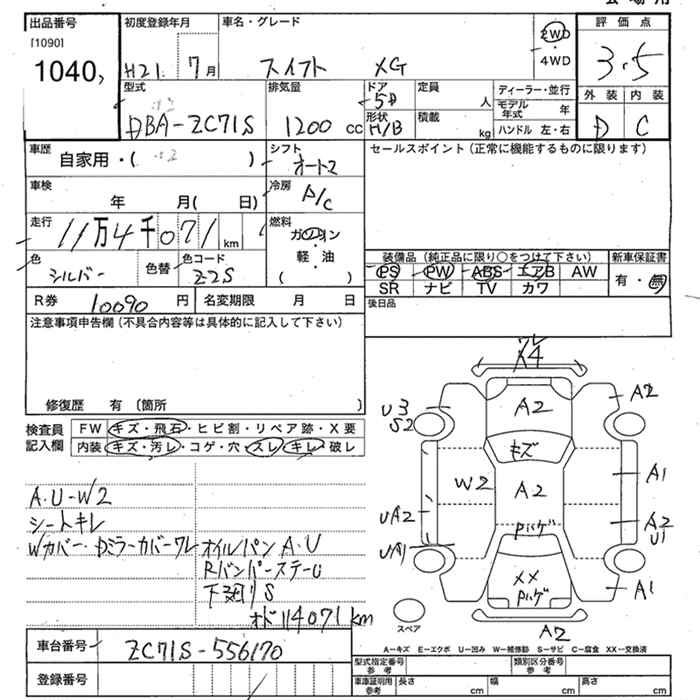 出品番号
[1090]
1040,
初度登録年月
H21. 7月
車名・グレード
スイフト XG
2WD
・
4WD
評価点
3.5
外装 内装
D C
型式
DBA-ZC71S
排気量
1200 cc
ドア
5D
形状
H/B
定員
人
積載
kg
ディーラー・並行
モデル年式 年
ハンドル 左・右
車歴
自家用・( )
シフト
オートマ
車検
年 月( 日)
冷房
P/C
走行
11万4千071 km
燃料
ガソリン
・
軽・油
( )
色
シルバー
色替
色コード
Z2S
R券 10090 円
名変期限 月 日
セールスポイント(正常に機能するものに限ります)
装備品 (純正品に限り○をつけて下さい)
新車保証書
PS PW ABS エアB AW
SR ナビ TV カワ
有・無
後日品
注意事項申告欄(不具合内容等は具体的に記入して下さい)
修復歴 有 (箇所
検査員
記入欄
FW キズ・飛石・ヒビ割・リペア跡・X要
内装 キズ・汚レ・コゲ・穴・スレ・キレ・破レ
A.U-W2
シートキレ
Wカバー・Dミラーカバーワレ
オイルパン A.U
RバンパーステーU
下廻リS
オド114071km
ワレ
X4
A2
A2
U3
S2
キズ
W2
A2
A1
UA2
A2
U1
ハゲ
UA1
XX
ハゲ
A1
スペア
A2
A-キズ E-エクボ U-凹み W-補修跡 S-サビ C-腐食 XX-交換済
車台番号 ZC71S-556170
登録番号
型式指定番号
参考
類別区分番号
参考
車庫証明用
参考
長さ cm
幅 cm
高さ cm